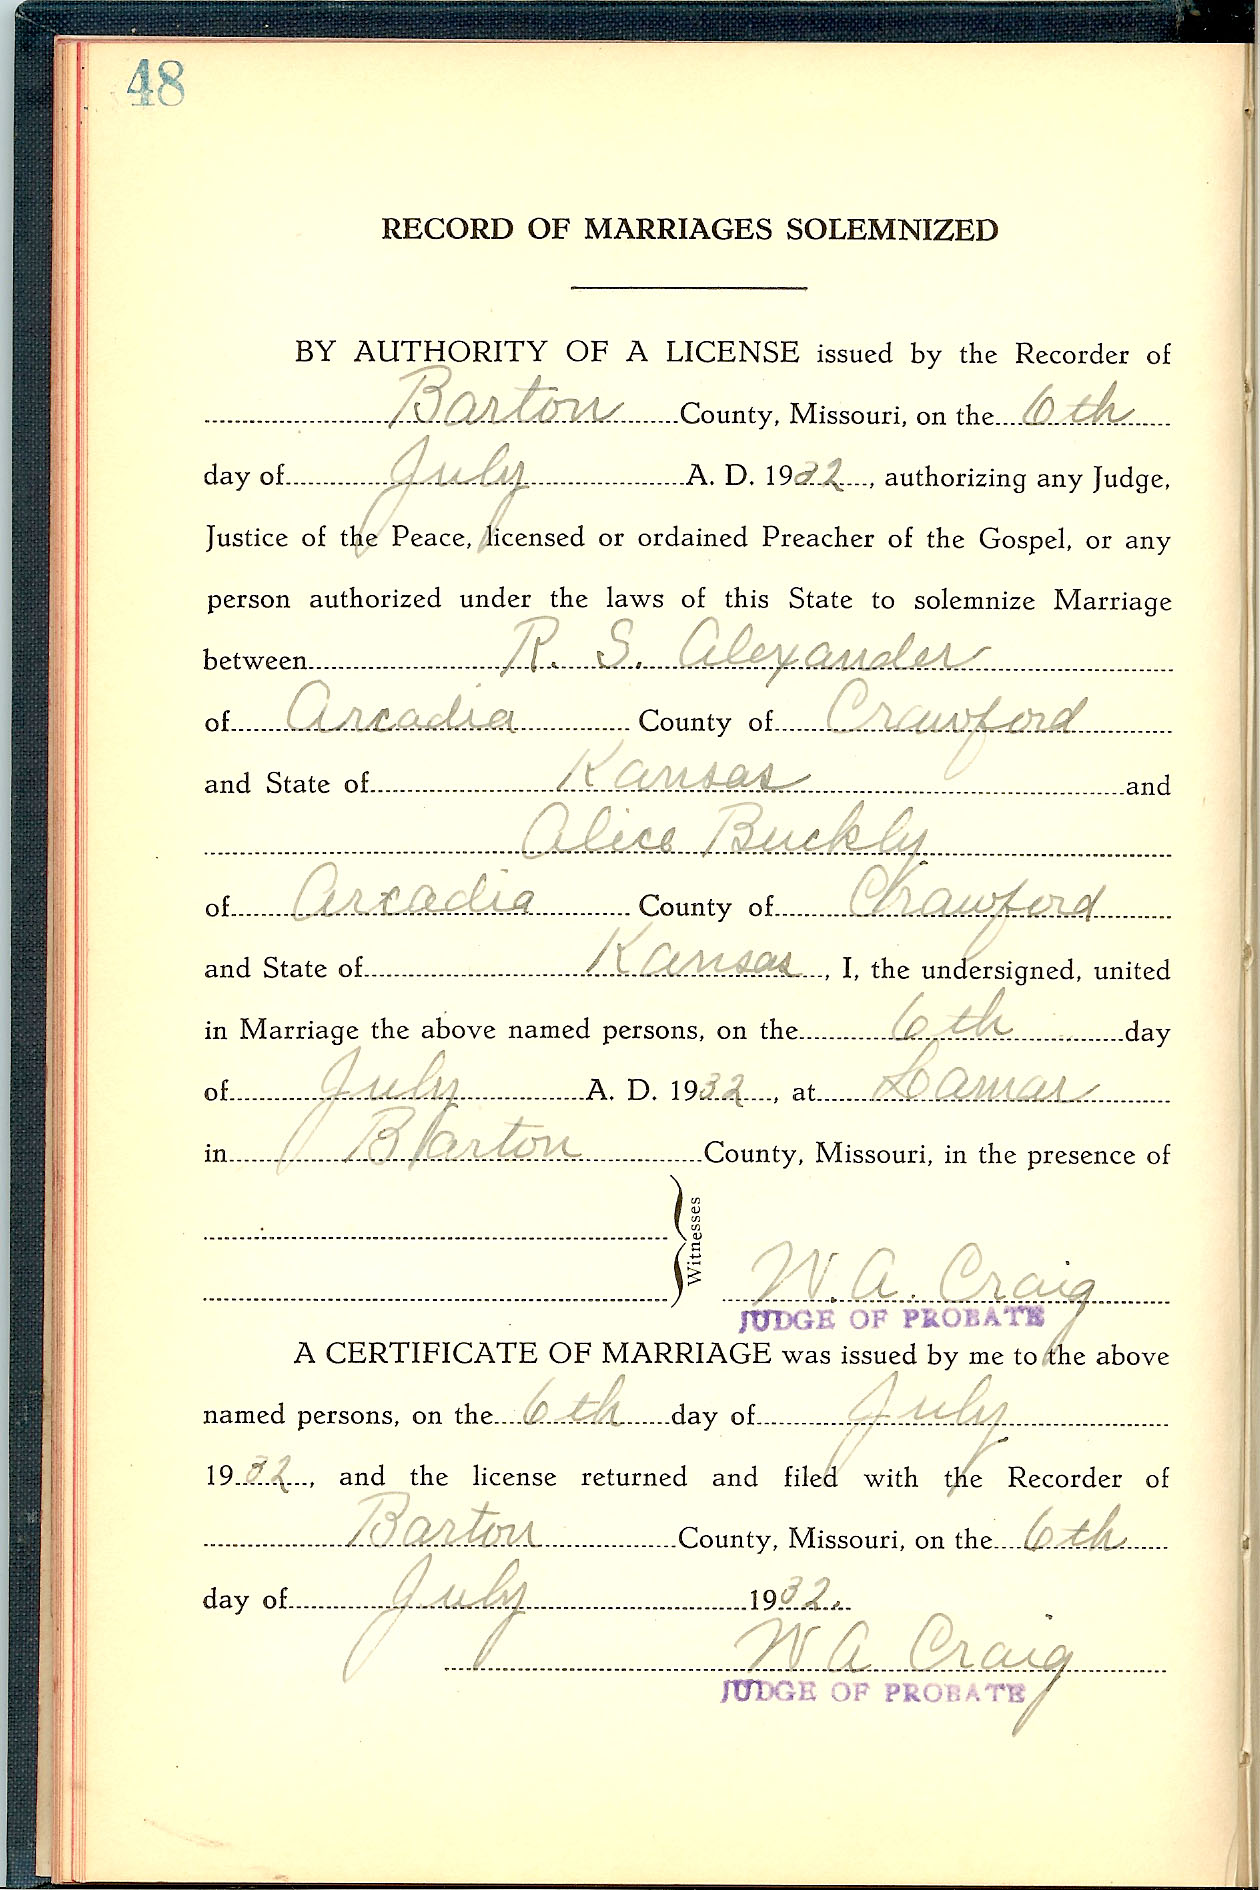 48
RECORD OF MARRIAGES SOLEMNIZED
BY AUTHORITY OF A LICENSE issued by the Recorder of
Barton County, Missouri, on the 6th
day of July A. D. 1932, authorizing any Judge,
Justice of the Peace, licensed or ordained Preacher of the Gospel, or any
person authorized under the laws of this State to solemnize Marriage
between R. S. Alexander
of Arcadia County of Crawford
and State of Kansas and
Alice Buckly
of Arcadia County of Crawford
and State of Kansas, I, the undersigned, united
in Marriage the above named persons, on the 6th day
of July A. D. 1932, at Lamar
in Barton County, Missouri, in the presence of
Witnesses
W. A. Craig
JUDGE OF PROBATE
A CERTIFICATE OF MARRIAGE was issued by me to the above
named persons, on the 6th day of July
1932, and the license returned and filed with the Recorder of
Barton County, Missouri, on the 6th
day of July 1932.
W A Craig
JUDGE OF PROBATE